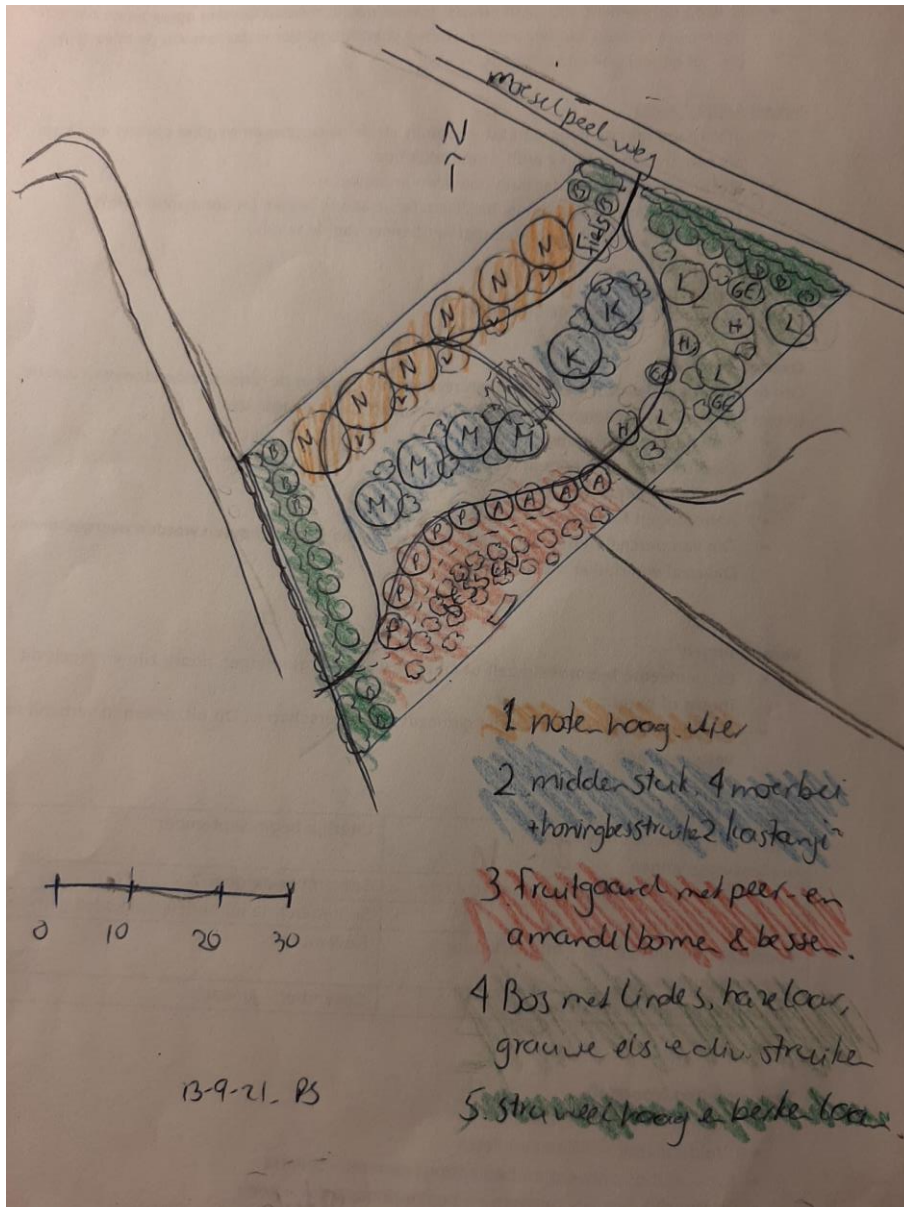 moeselpeelweg
N
Fiets
B B
N N N N N N
V V V V V V
K K
M M M M
L GE H L
H L
GE GE
H L
P P P P P A A A A
BESSEN
B B B
B B
1 noten haag vlier
2. middenstuk, 4 moerbei
+ honingbesstruik 2 kastanje
3. fruitgaard met peer- en
amandelbome & bessen.
4 Bos met Lindes, hazelaar,
grauwe els e div. struiken
5. struweelhaag en berkenlaan.
0 10 20 30
13-9-21. PS